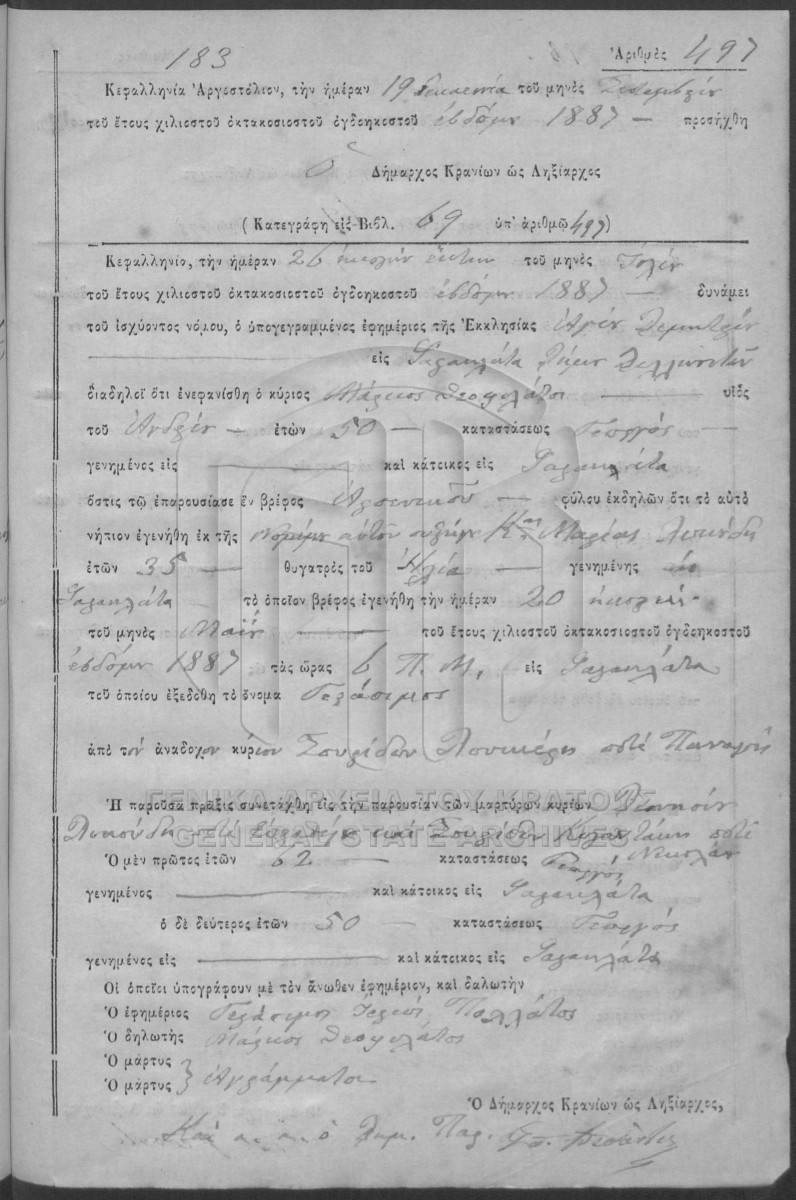 183
Ἀριθμὸς 497
Κεφαλληνία Ἀργοστόλιον, τὴν ἡμέραν 19 δεκαεννέα τοῦ μηνὸς Σεπτεμβρίου
τοῦ ἔτους χιλιοστοῦ ὀκτακοσιοστοῦ ὀγδοηκοστοῦ ἑβδόμου 1887 — προσήχθη
Ὁ Δήμαρχος Κρανίων ὡς Ληξίαρχος
(Κατεγράφη εἰς Βιβλ. 69 ὑπ' ἀριθμῷ 497)
Κεφαλληνία, τὴν ἡμέραν 26 εἰκοστὴν ἕκτην τοῦ μηνὸς Ἰουλίου
τοῦ ἔτους χιλιοστοῦ ὀκτακοσιοστοῦ ὀγδοηκοστοῦ ἑβδόμου 1887 — δυνάμει
τοῦ ἰσχύοντος νόμου, ὁ ὑπογεγραμμένος ἐφημέριος τῆς Ἐκκλησίας Ἁγίου Δημητρίου
εἰς Φαρακλάτα
διαδηλοῖ ὅτι ἐνεφανίσθη ὁ κύριος Μάρκος Θεοφιλάτος υἱὸς
τοῦ Ἀνδρέου — ἐτῶν 50 — καταστάσεως Γεωργός —
γενημένος εἰς — καὶ κάτοικος εἰς Φαρακλάτα
ὅστις τῷ ἐπαρουσίασε ἓν βρέφος Ἀρσενικοῦ — φύλου ἐκδηλῶν ὅτι τὸ αὐτὸ
νήπιον ἐγενήθη ἐκ τῆς νομίμου αὐτοῦ συζύγου Κας Μαρίας
ἐτῶν 35 — θυγατρὸς τοῦ Ἠλία — γενημένης εἰς
Φαρακλάτα τὸ ὁποῖον βρέφος ἐγενήθη τὴν ἡμέραν 20 εἰκοστὴν
τοῦ μηνὸς Μαΐου — τοῦ ἔτους χιλιοστοῦ ὀκτακοσιοστοῦ ὀγδοηκοστοῦ
ἑβδόμου 1887 τὰς ὥρας 6 Π. Μ. εἰς Φαρακλάτα
τοῦ ὁποίου ἐξεδόθη τὸ ὄνομα Γεράσιμος
ἀπὸ τὸν ἀνάδοχον κύριον Σπυρίδων Λουκέρης ποτὲ Παναγῆ
Ἡ παροῦσα πρᾶξις συνετάχθη εἰς τὴν παρουσίαν τῶν μαρτύρων κυρίων Διονησίου
ποτὲ καὶ Σπυρίδων ποτὲ
Νικολάου
Ὁ μὲν πρῶτος ἐτῶν 62 — καταστάσεως Γεωργός
γενημένος — καὶ κάτοικος εἰς Φαρακλάτα
ὁ δὲ δεύτερος ἐτῶν 50 — καταστάσεως Γεωργός
γενημένος εἰς — καὶ κάτοικος εἰς Φαρακλάτα
Οἱ ὁποῖοι ὑπογράφουν μὲ τὸν ἄνωθεν ἐφημέριον, καὶ δαλωτὴν
Ὁ ἐφημέριος Γεράσιμος Ἱερεύς Πολλάτος
Ὁ δηλωτὴς Μάρκος Θεοφιλάτος
Ὁ μάρτυς
Ὁ μάρτυς } Ἀγράμματοι
Ὁ Δήμαρχος Κρανίων ὡς Ληξίαρχος,
ὁ Δημ. Παρ.
ΓΕΝΙΚΑ ΑΡΧΕΙΑ ΤΟΥ ΚΡΑΤΟΥΣ
GENERAL STATE ARCHIVES